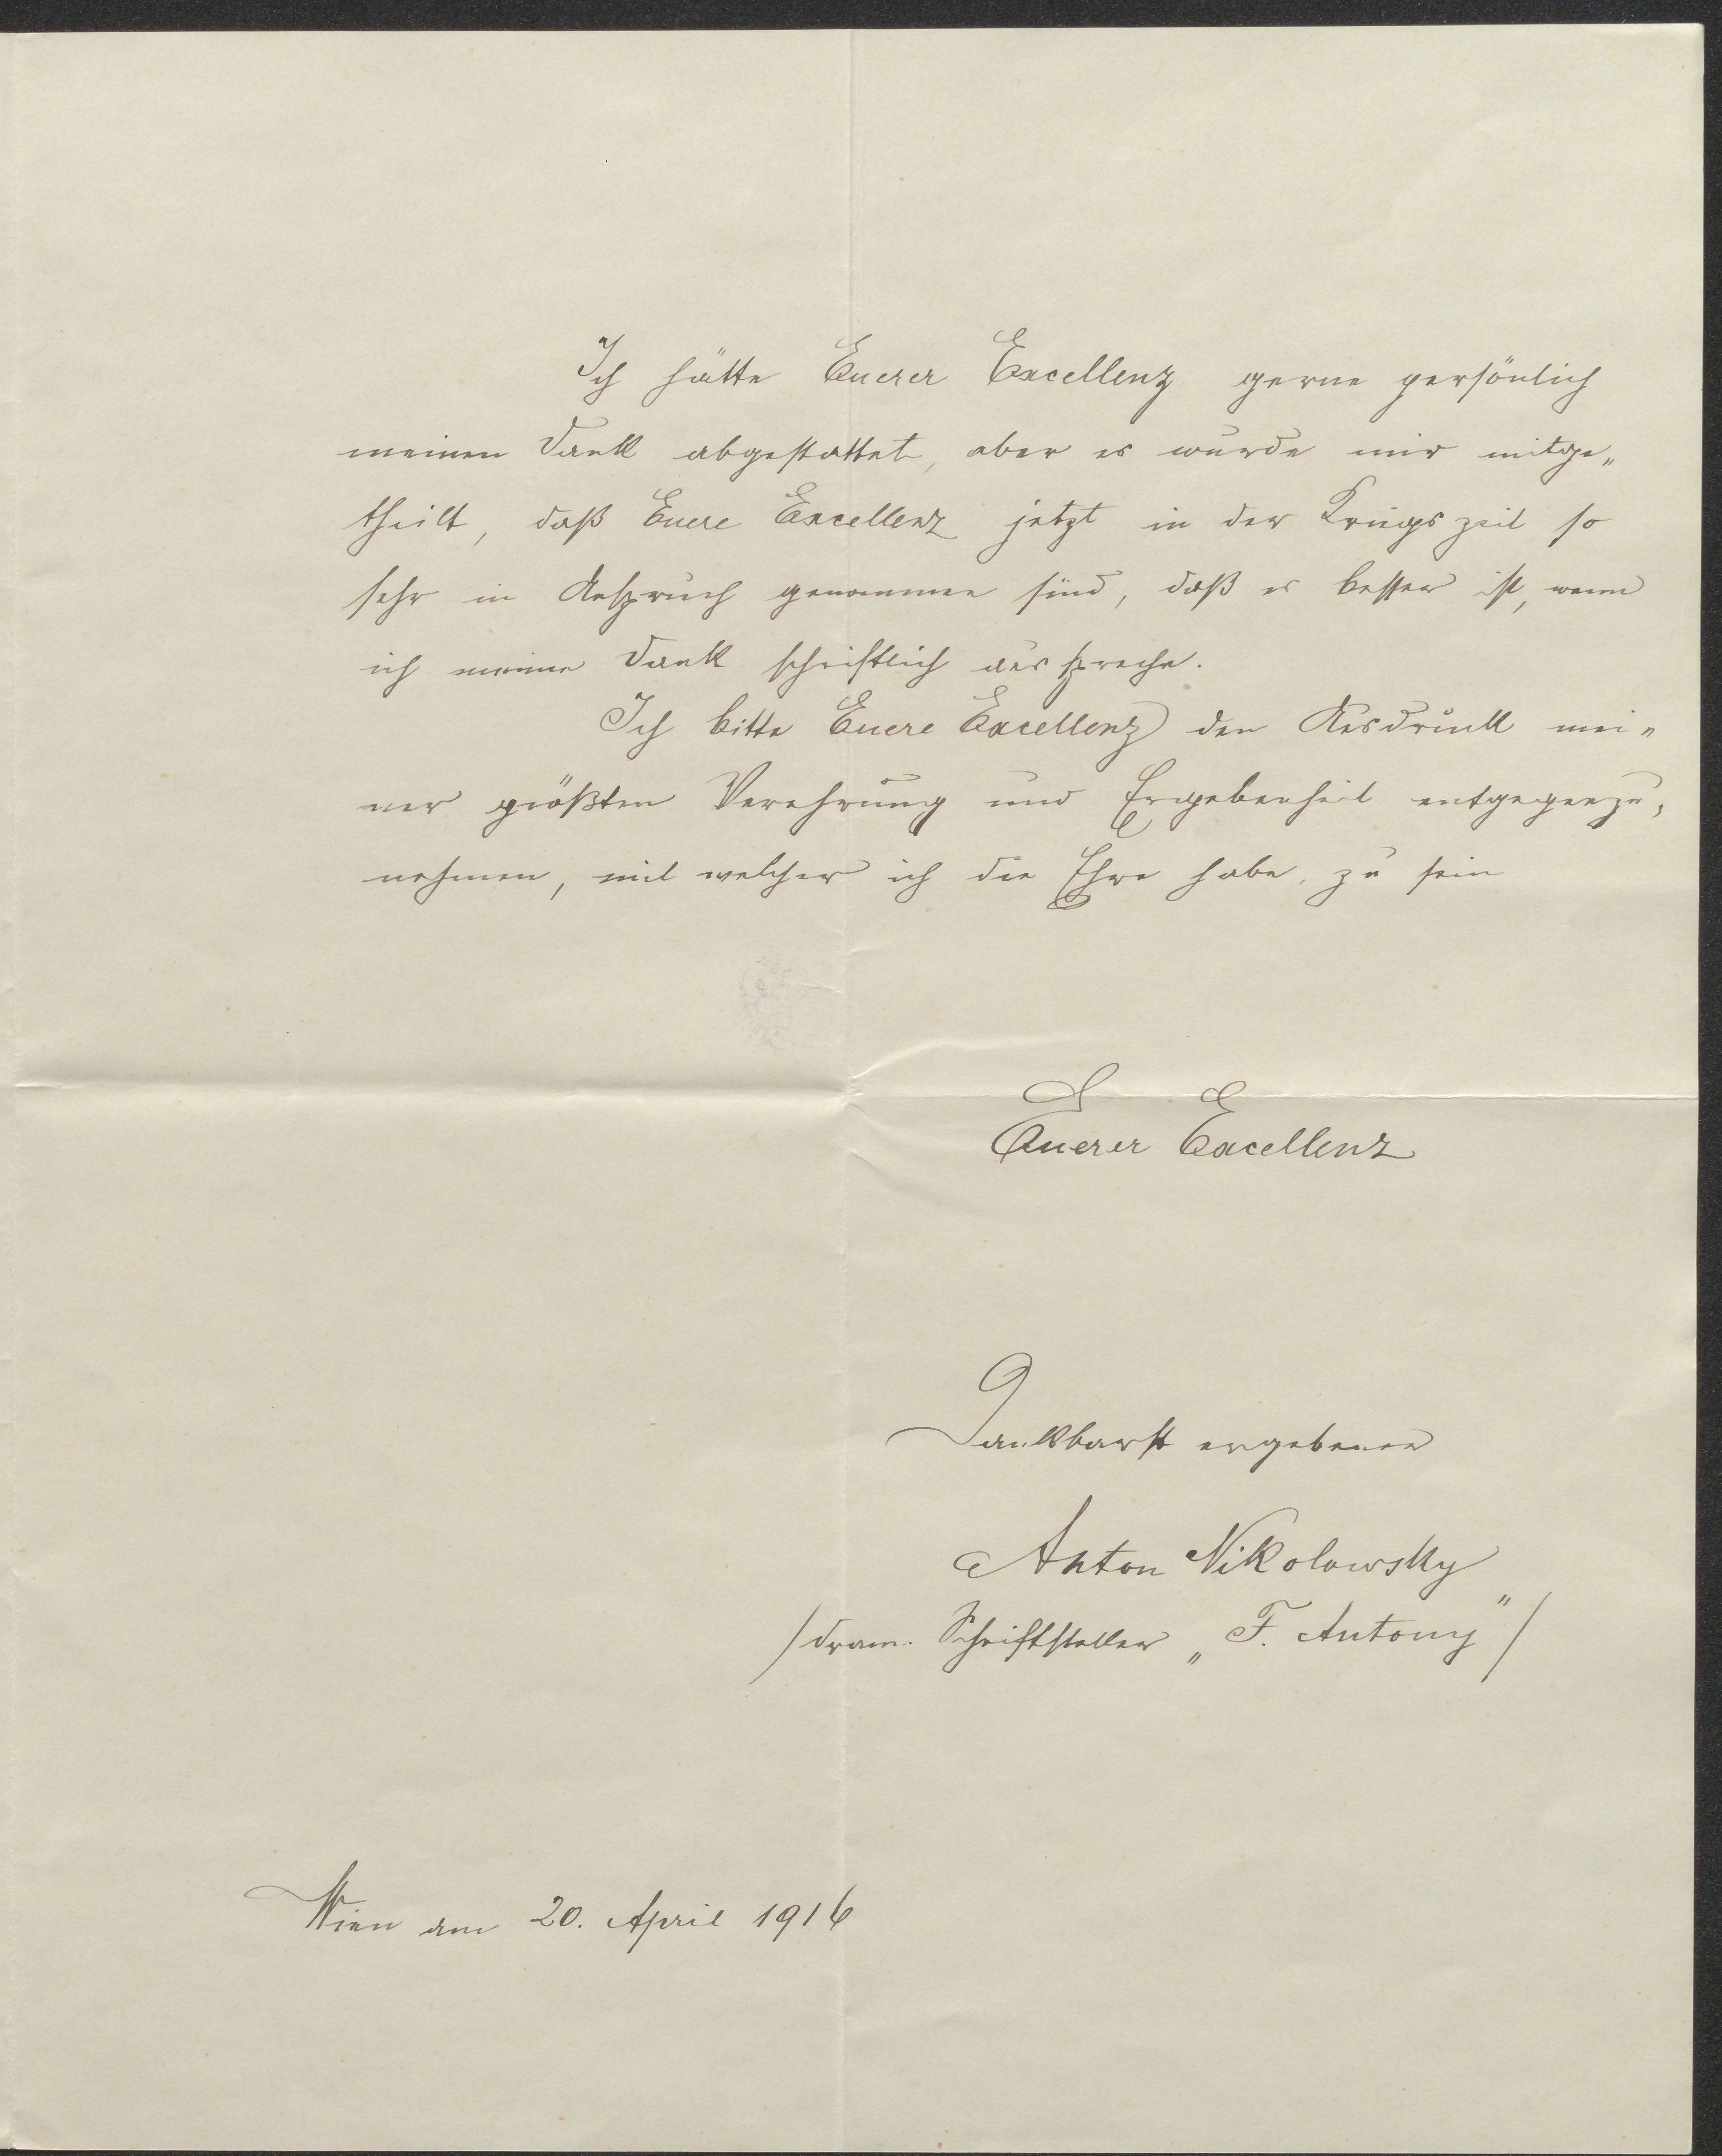 Ich hätte Euerer Excellenz gerne persönlich
meinen Dank abgestattet, aber es wurde mir mitge„
theilt, daß Euere Excellenz jetzt in der Kriegszeit so
sehr in Anspruch genommen sind, daß es besser ist, wenn
ich meinen Dank schriftlich ausspreche.
Ich bitte Euere Excellenz den Ausdruck mei„
ner größten Verehrung und Ergebenheit entgegenzu„
nehmen, mit welcher ich die Ehre habe, zu sein
Euerer Excellenz
Dankbarst ergebener
Anton Nikolowsky
/dram. Schriftsteller „F. Antony"/
Wien am 20. April 1916